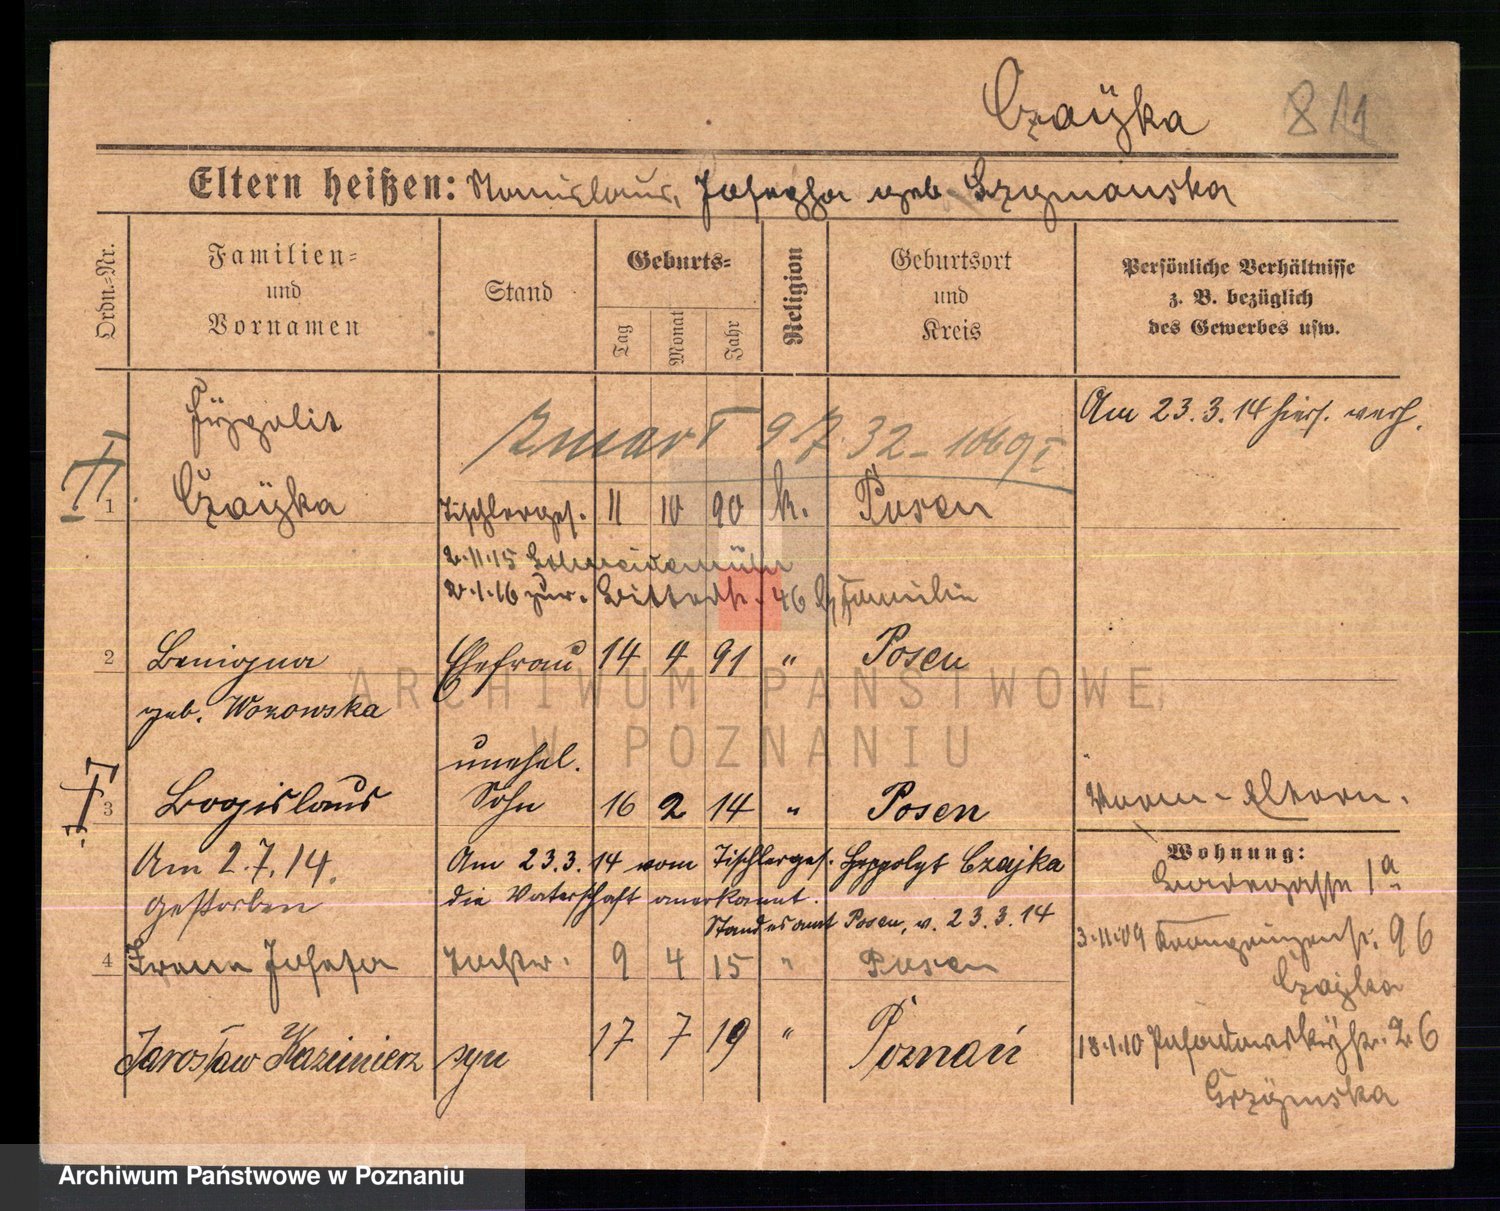 Czaÿka 811
Eltern heißen: Stanislaus, Josepha geb. Szymanska
Ordn.-Nr.
Familien-
und
Vornamen
Stand
Geburts-
Tag
Monat
Jahr
Religion
Geburtsort
und
Kreis
Persönliche Verhältnisse
z. B. bezüglich
des Gewerbes usw.
Am 23.3.14 hiers. verh.
zmarł 9.7.32 - 1069/I
1 Czaÿka Tischlerges. 11 10 90 k. Posen
2.11.15 Schneidemühl
2.1.16 zur. 46 Familie
2 Benigna Ehefrau 14 4 91 " Posen
geb. Wozowska
unehel.
3 Bogislaus Sohn 16 2 14 " Posen
Am 2.7.14.
gestorben
Am 23.3.14 vom Tischlerges. Hyppolyt Czajka
die Vaterschaft anerkannt.
Standesamt Posen, v. 23.3.14
4 Irena Josefa Tochter. 9 4 15 " Posen
Jarosław Kazimierz syn 17 7 19 " Poznań
Eltern.
Wohnung:
1a
3.11.09 Kronprinzenstr. 96
Czajka
18.1.10 26
Grzÿmska
ARCHIWUM PAŃSTWOWE
W POZNANIU
Archiwum Państwowe w Poznaniu